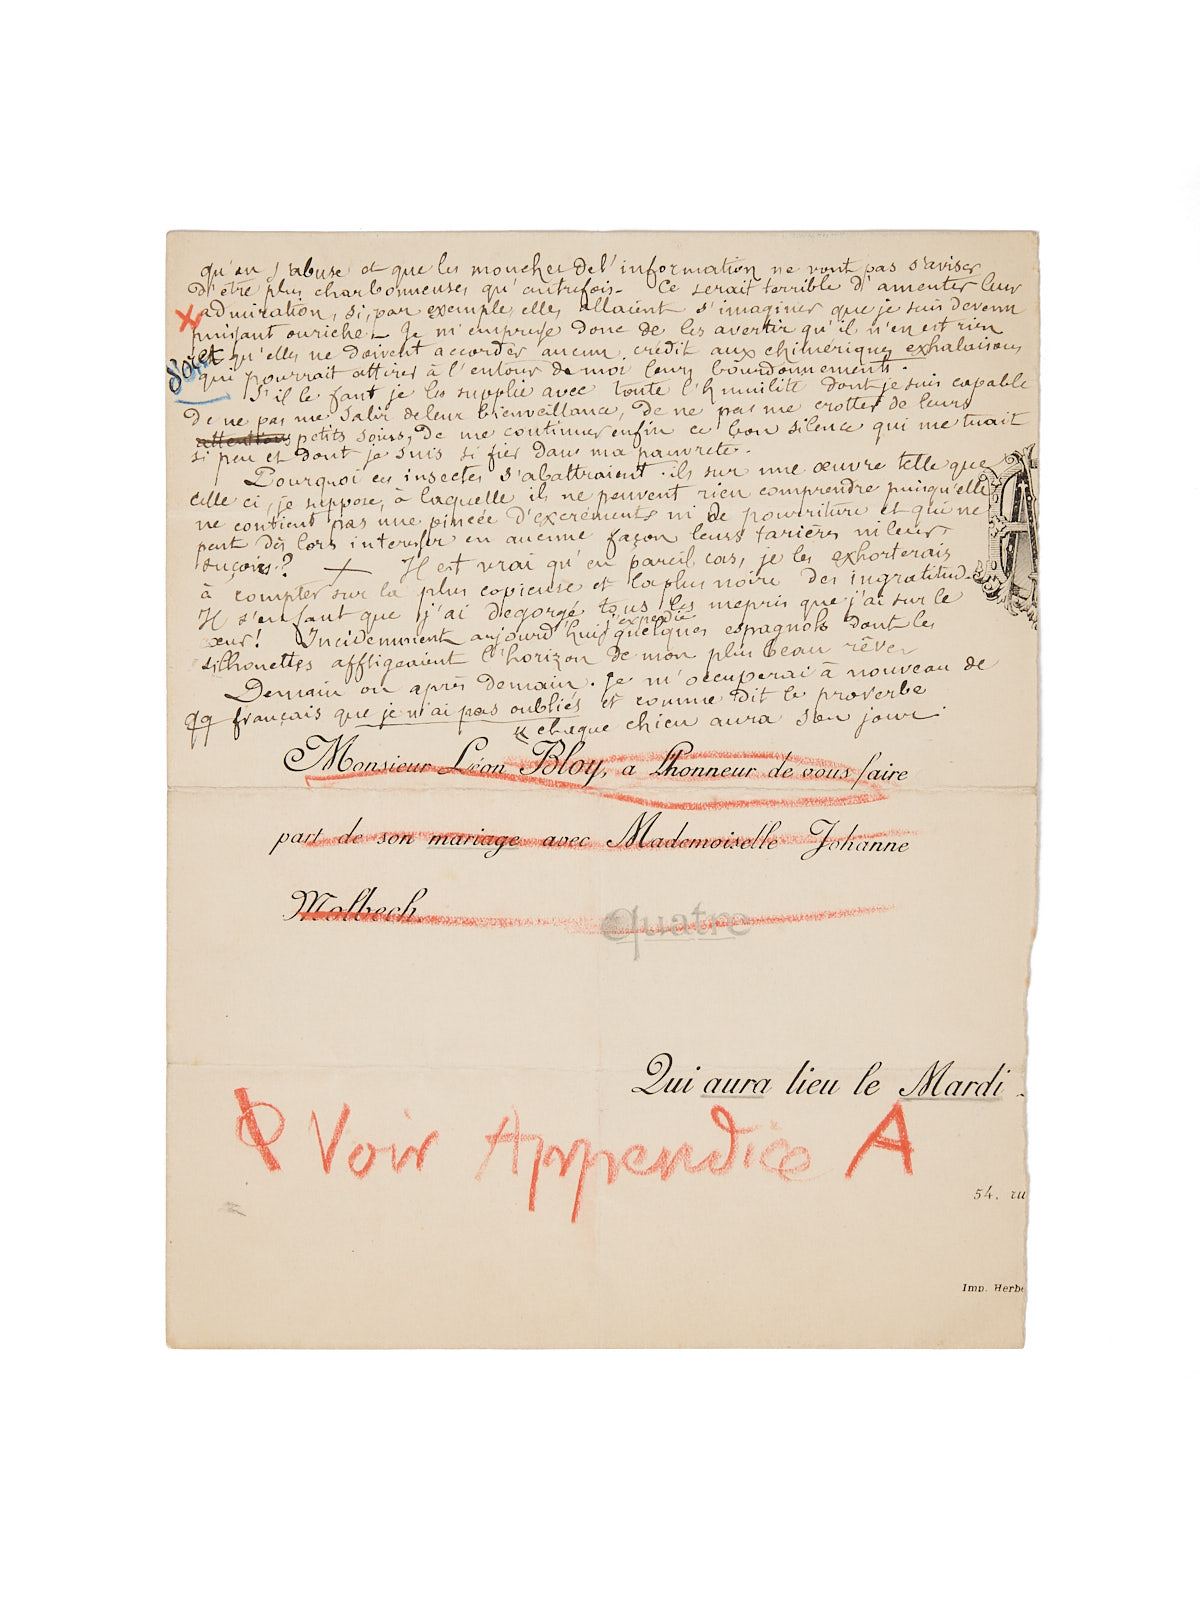 qu'on s'abuse et que les mouches de l'information ne vont pas s'aviser
d'être plus charbonneuses qu'autrefois. Ce serait terrible d'ameuter leur
admiration, si, par exemple, elles allaient s'imaginer que je suis devenu
puissant ou riche! Je m'empresse donc de les avertir qu'il n'en est rien
et qu'elles ne doivent accorder aucun crédit aux chimériques exhalaisons
qui pourrait attirer à l'entour de moi leurs bourdonnements.
S'il le faut je les supplie avec toute l'humilité dont je suis capable
de ne pas me salir de leur bienveillance, de ne pas me crotter de leurs
attentions petits soins, de me continuer enfin ce bon silence qui me tuait
si peu et dont je suis si fier dans ma pauvreté.
Pourquoi ces insectes s'abattraient-ils sur une œuvre telle que
celle ci, je suppose, à laquelle ils ne peuvent rien comprendre puisqu'elle
ne contient pas une pincée d'excréments ni de pourriture et qui ne
peut dès lors intéresser en aucune façon leurs tarières ni leurs
suçoirs? Il est vrai qu'en pareil cas, je les exhorterais
à compter sur la plus copieuse et la plus noire des ingratitudes
Il s'en faut que j'ai dégorgé tous les mépris que j'ai sur le
cœur! Incidemment aujourd'hui j'expédie quelques espagnols dont les
silhouettes affligeaient l'horizon de mon plus beau rêve
Demain ou après demain. Je m'occuperai à nouveau de
qq français que je n'ai pas oubliés et comme dit le proverbe
« chaque chien aura son jour.
Monsieur Léon Bloy, a l'honneur de vous faire
part de son mariage avec Mademoiselle Johanne
Molbech.
quatre
Qui aura lieu le Mardi
Voir Appendice A
54, ru
Imp. Herbe